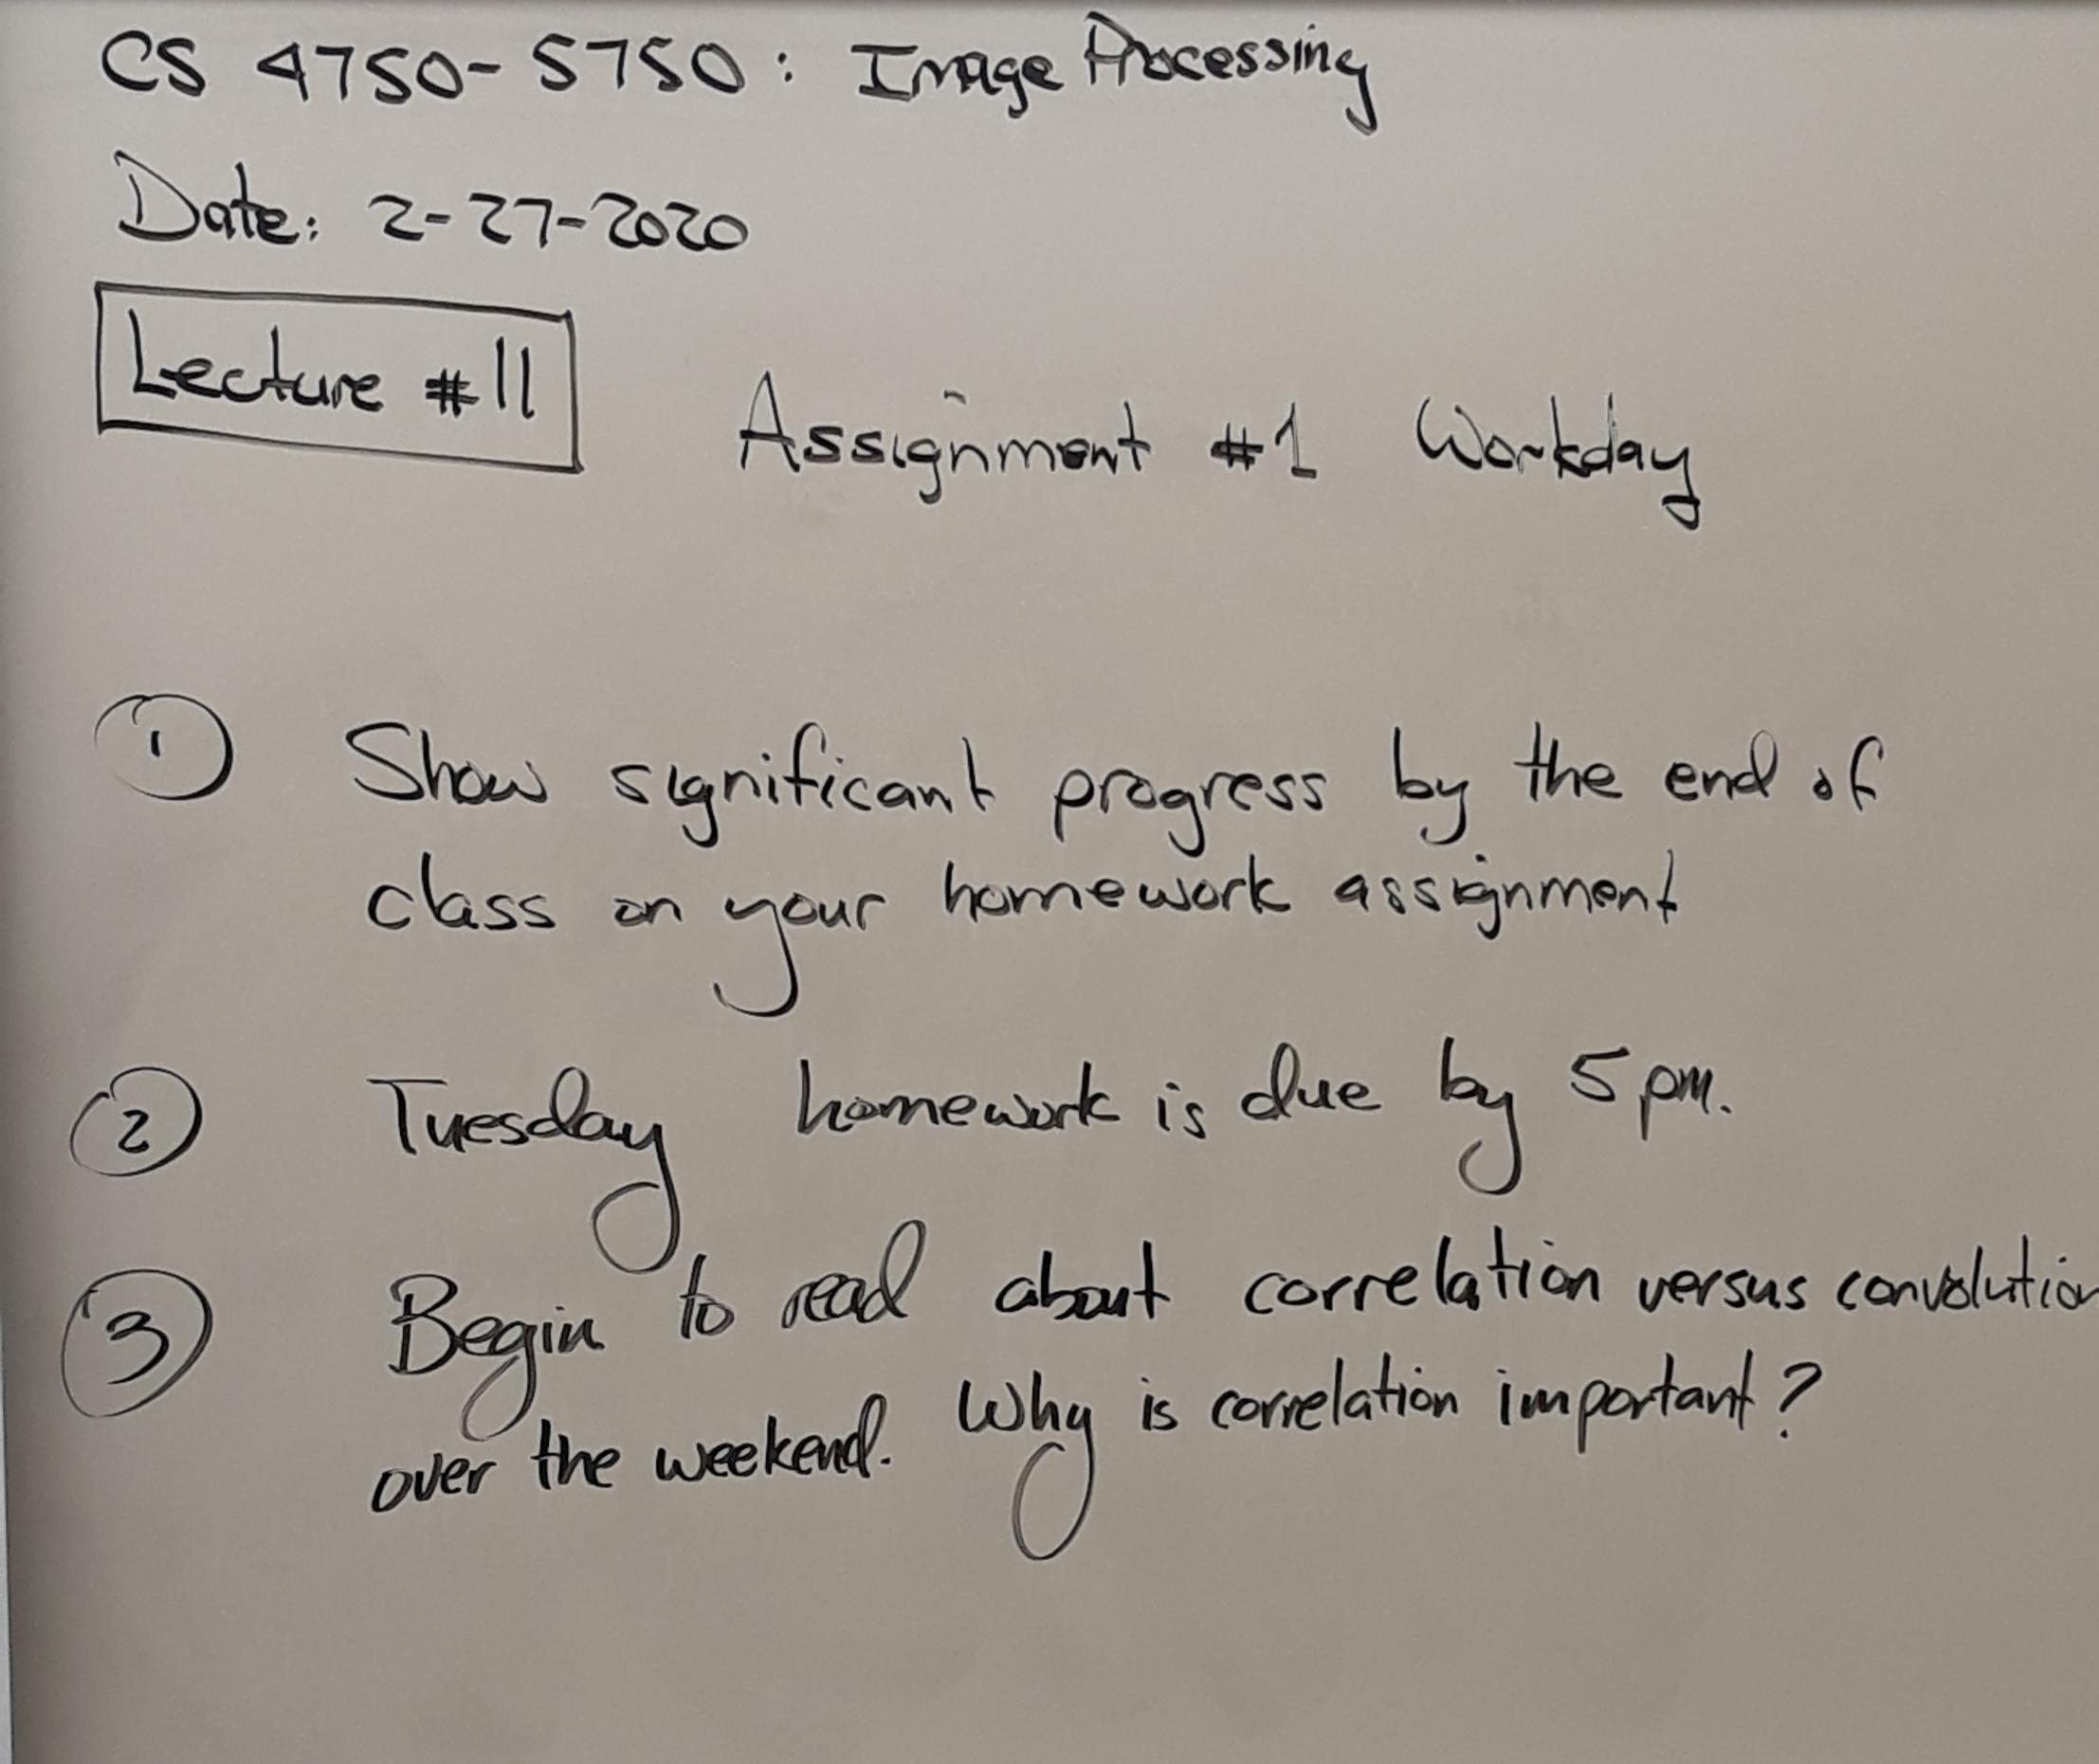 CS 4750-5750: Image Processing
Date: 2-27-2020
Lecture #11
Assignment #1 Workday
1 Show significant progress by the end of
class on your homework assignment
2 Tuesday homework is due by 5pm.
3 Begin to read about correlation versus convolution
over the weekend. Why is correlation important?